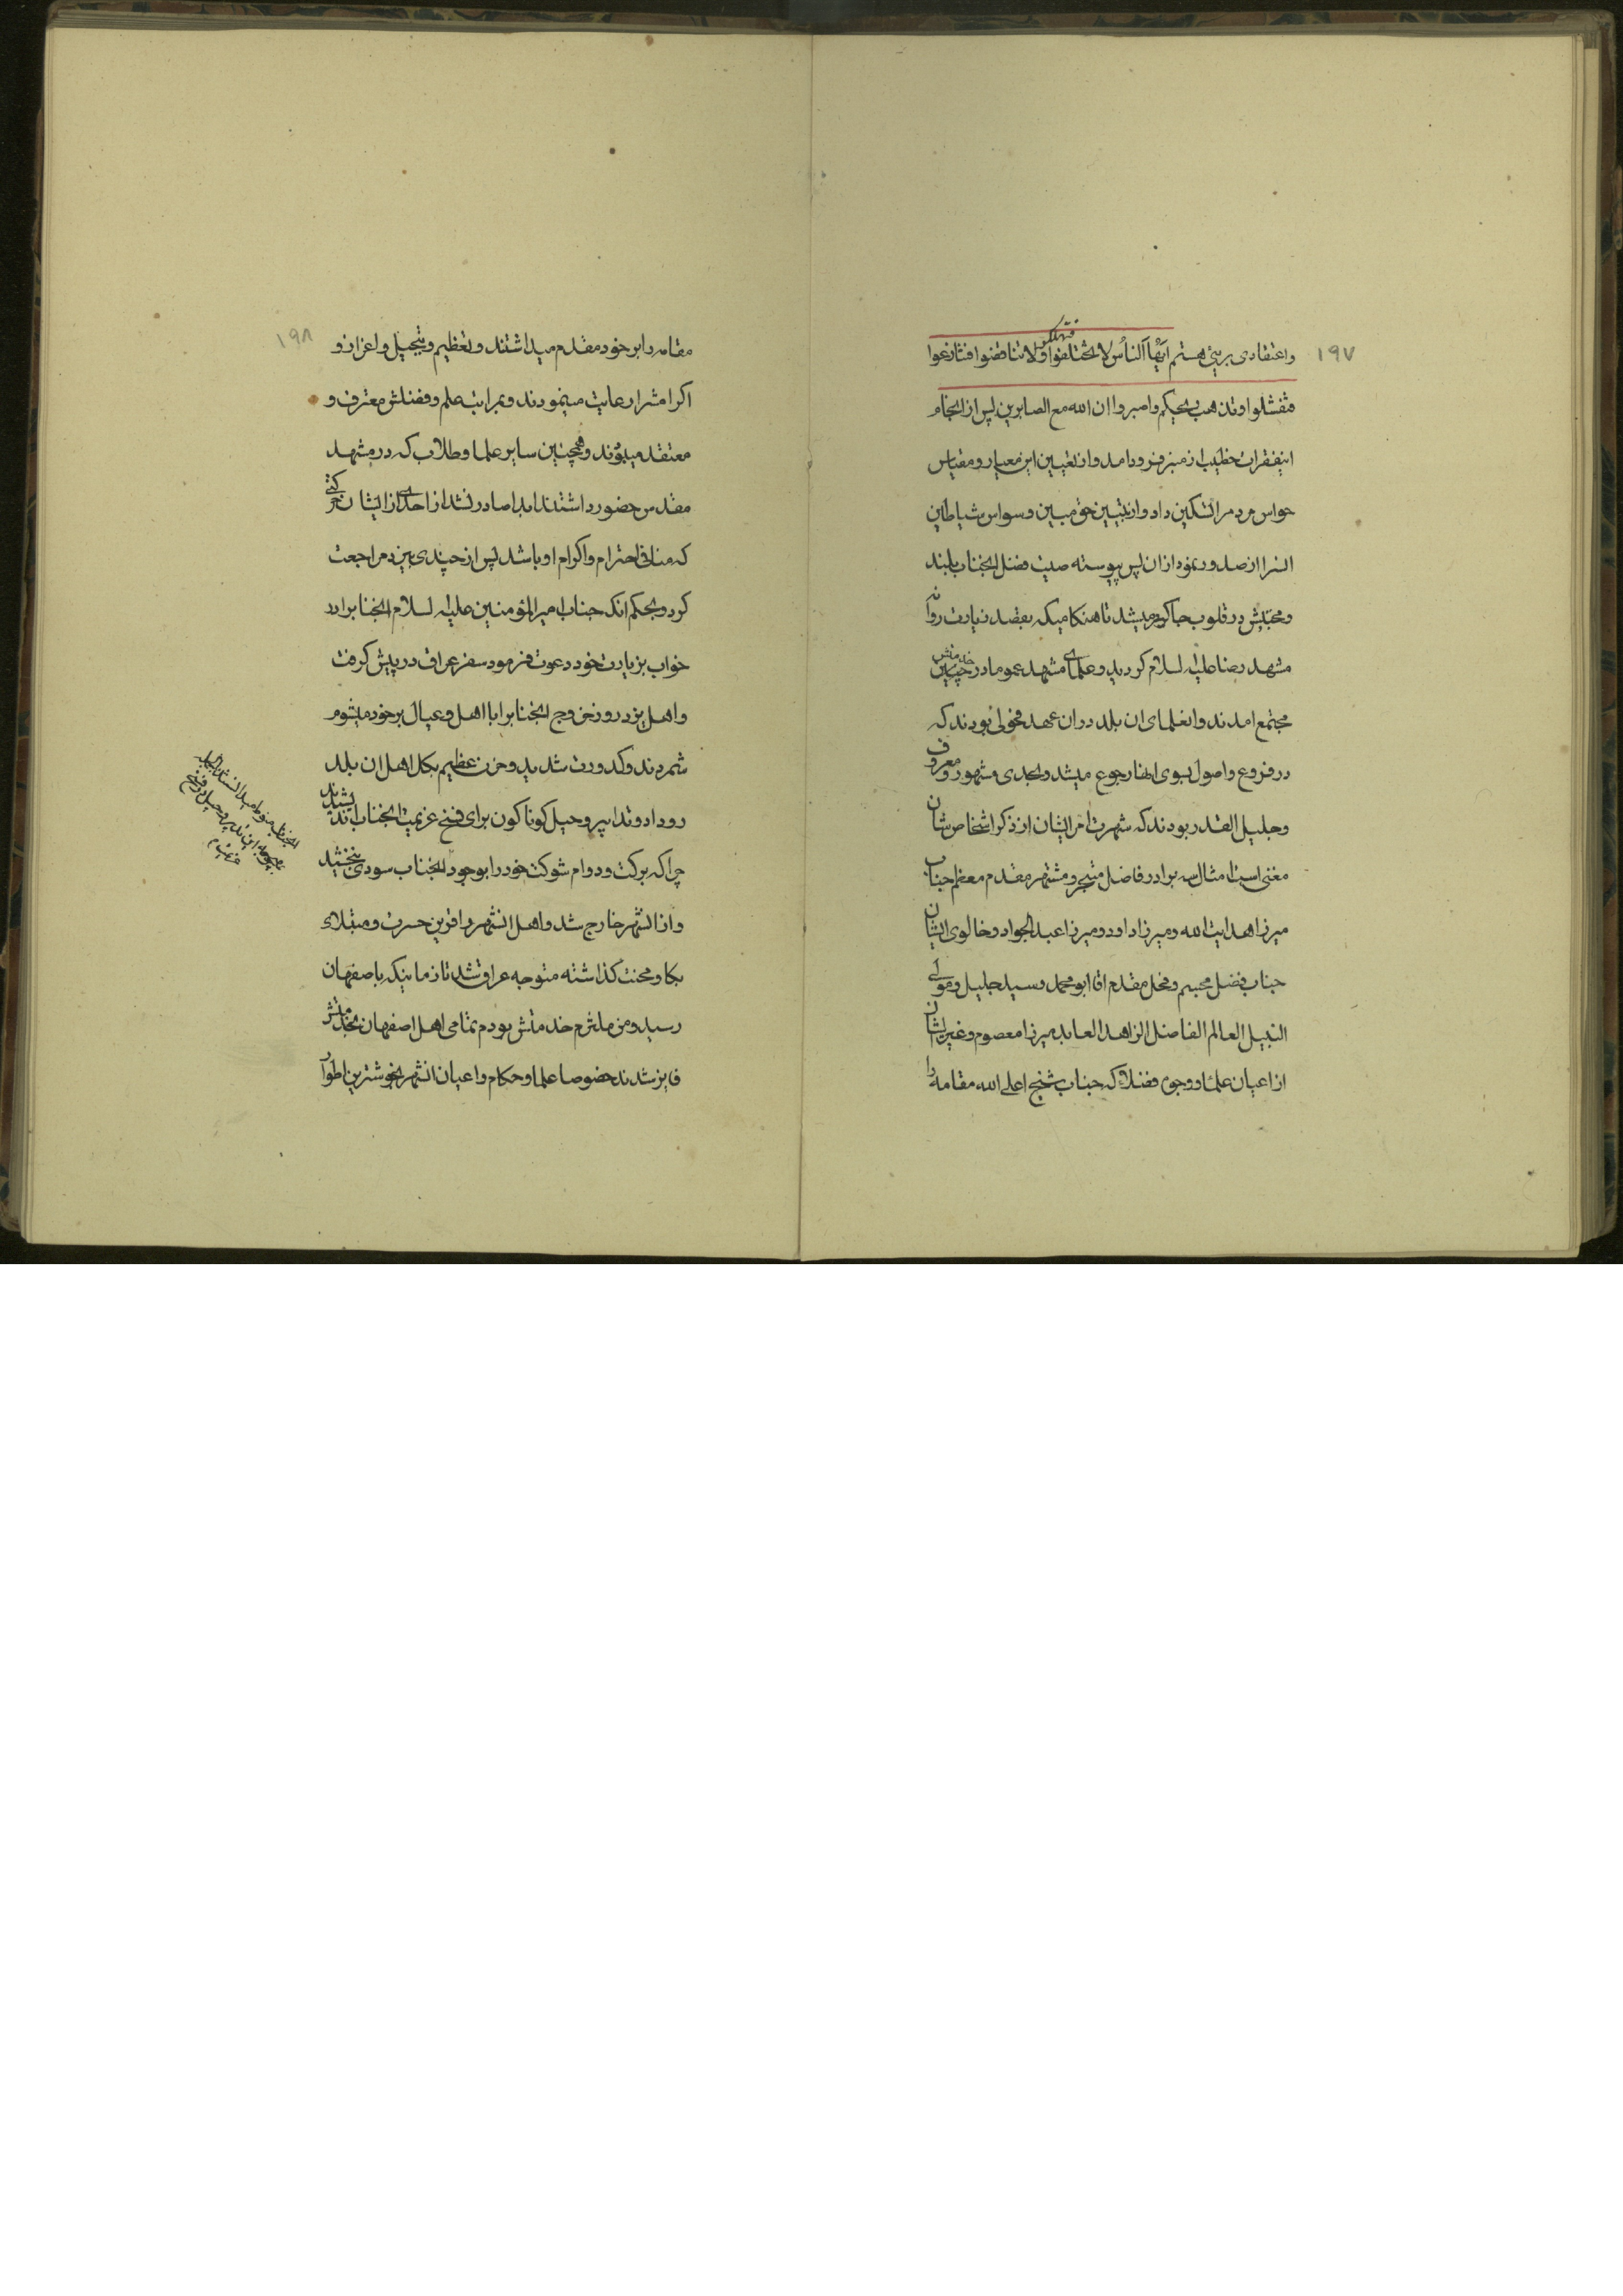 ۱۹۷
واعتقادی بریئ هستم ایها الناس لا تختلفوا فتهلکوا ولا تناقضوا فتنازعوا
فتفشلوا وتذهب ریحکم واصبروا ان الله مع الصابرین پس از انجام
اینفقرات خطیب از منبر فرود امد و از تعیین این معیار و مقیاس
حواس مردم را تسکین داد و از تبیین حق مبین وسواس شیاطین
انسرا از صدور نمود از ان پس پیوسته صیت فضل انجناب بلند
ومحبتش در قلوب جا گیر میشد تا هنگامیکه بقصد زیارت روانه
مشهد رضا علیه السلام گردید و علمای مشهد عموما در خدمتش
مجتمع امدند و انعلمای ان بلد در ان عهد فحولی بودند که
در فروع و اصول بسوی انها رجوع میشد و بجدی مشهور و معروف
وجلیل القدر بودند که شهرت امر ایشان از ذکر اشخاص شان
مغنی است امثال سه برادر فاضل متبحر و مشتهر مقدم معظم جناب
میرزا هدایت الله و میرزا داود و میرزا عبد الجواد و خالوی ایشان
جناب فضل مجسم و فحل مقدم اقا ابو محمد و سید جلیل و مولی
النبیل العالم الفاضل الزاهد العابد میرزا معصوم و غیر ایشان
از اعیان علما و وجوه فضلا که جناب شیخ اعلی الله مقامه را
۱۹۸
مقامه را بر خود مقدم میداشتند و تعظیم و تبجیل و اعزاز و
اکرامش را رعایت مینمودند و بمراتب علم و فضلش معترف و
معتقد میبودند و همچنین سایر علما و طلاب که در مشهد
مقدس حضور داشتند ابدا صادر نشد از احدی از ایشان حرکتی
که منافی احترام و اکرام او باشد پس از چندی بیزد مراجعت
کرد و بحکم انکه جناب امیر المؤمنین علیه السلام انجنابرا در
خواب بزیارت خود دعوت فرمود سفر عراق در پیش گرفت
واهل یزد روز خروج انجنابرا با اهل و عیال بر خود میشوم
شمردند و کدورت شدید و حزن عظیم بکل اهل ان بلد
روداد و تدابیر و حیل کوناکون برای فسخ عزیمت انجناب اندیشیدند
چرا که برکت و دوام شوکت خود را بوجود انجناب سودی نبخشید
واز انشهر خارج شد و اهل انشهر را قرین حسرت و مبتلای
بکا و محنت گذاشته متوجه عراق شد تا زمانیکه باصفهان
رسید و من ملتزم خدمتش بودم تمامی اهل اصفهان بخدمتش
فایز شدند خصوصا علما و حکام و اعیان انشهر بخوشترین اطوار